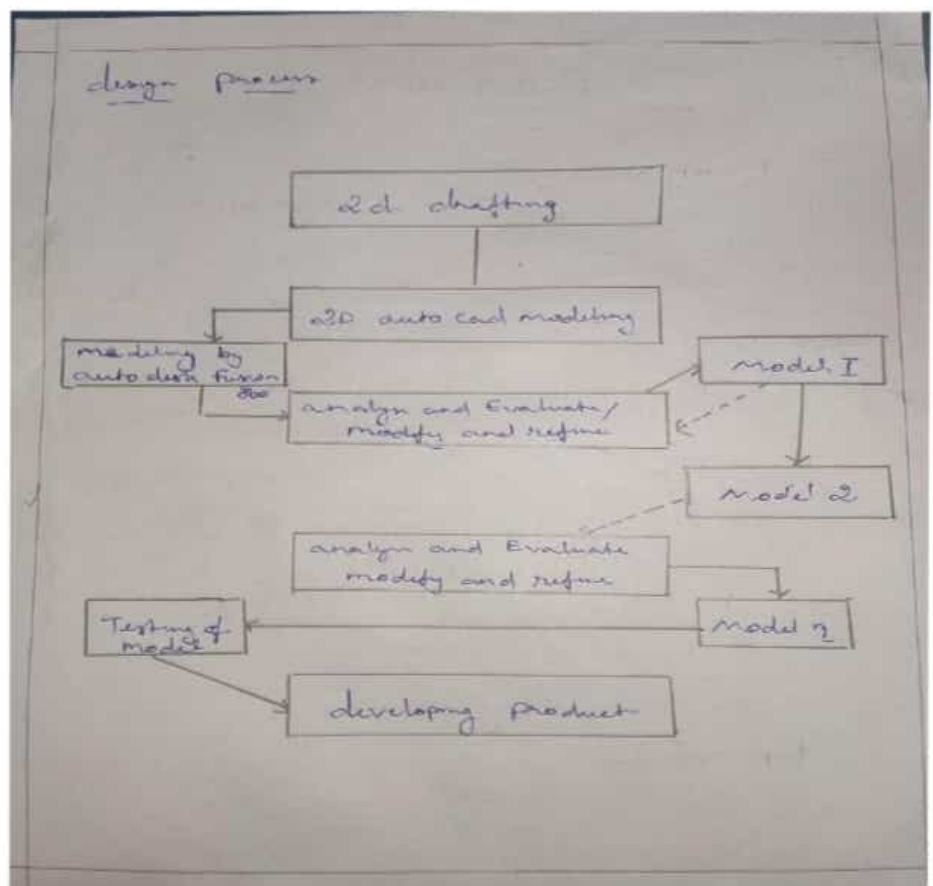 design process
2d drafting
2D auto cad modeling
modeling by
auto desk fusion
360
Model I
analyn and Evaluate/
modify and refine
Model 2
analyn and Evaluate
modify and refine
Testing of
model
Model n
developing product